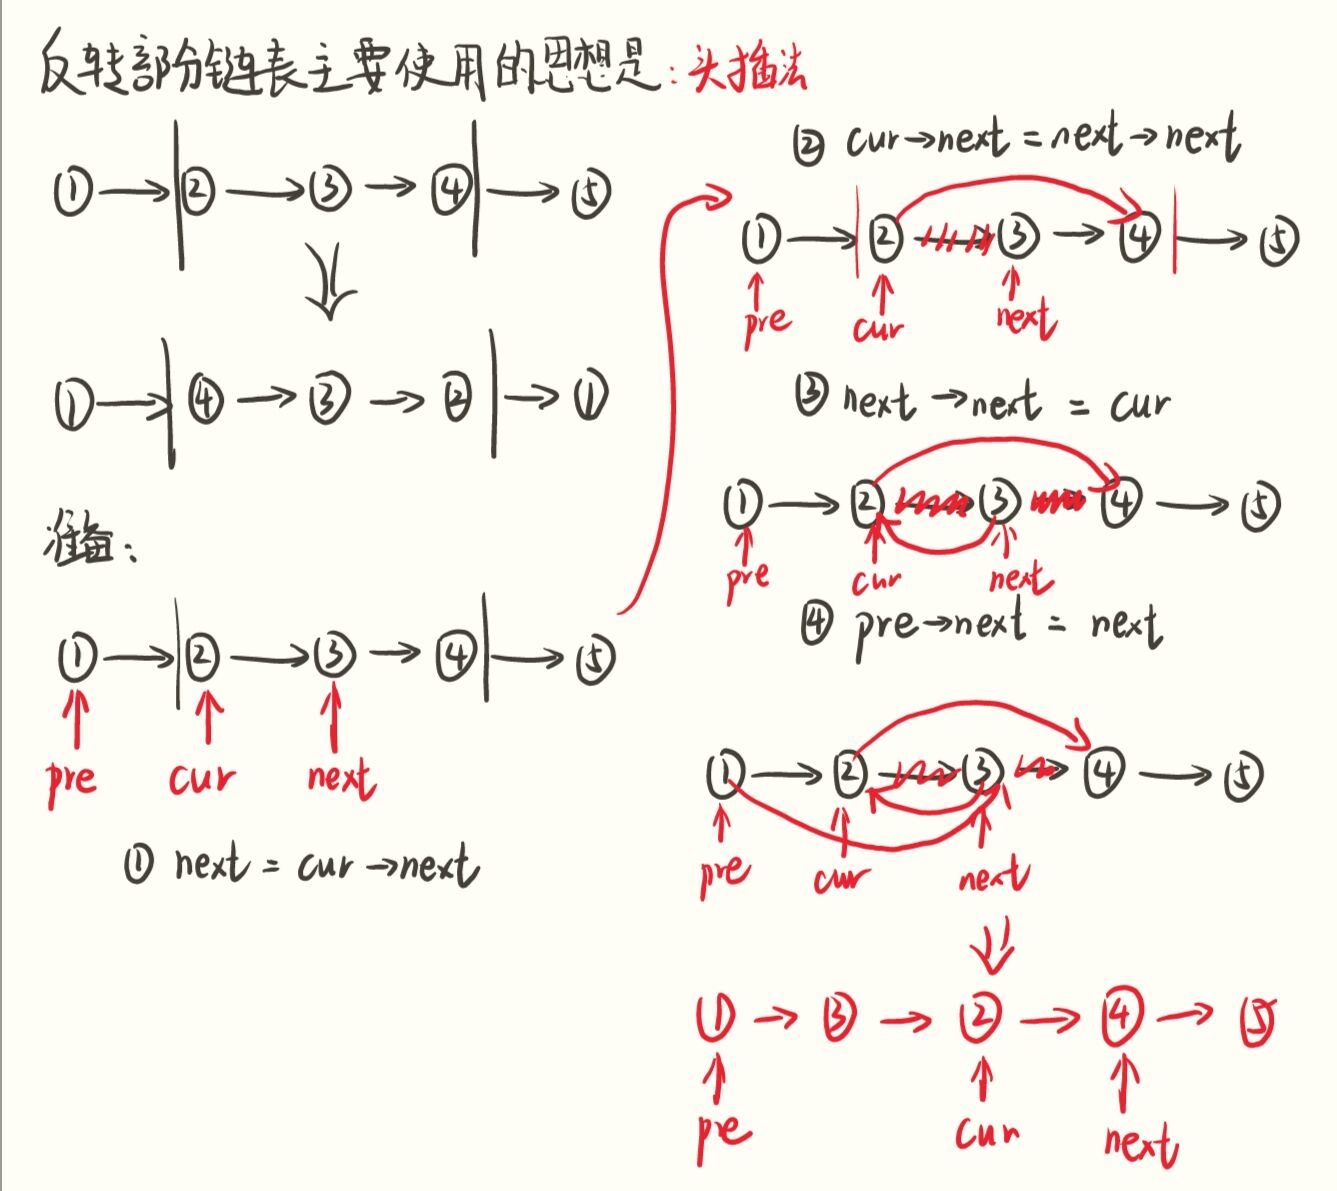 反转部分链表主要使用的思想是：头插法
① → ② → ③ → ④ → ⑤
① → ④ → ③ → ② → ①
准备：
① → ② → ③ → ④ → ⑤
pre cur next
① next = cur→next
② cur→next = next→next
① → ② → ③ → ④ → ⑤
pre cur next
③ next→next = cur
① → ② → ③ → ④ → ⑤
pre cur next
④ pre→next = next
① → ② → ③ → ④ → ⑤
pre cur next
① → ③ → ② → ④ → ⑤
pre cur next